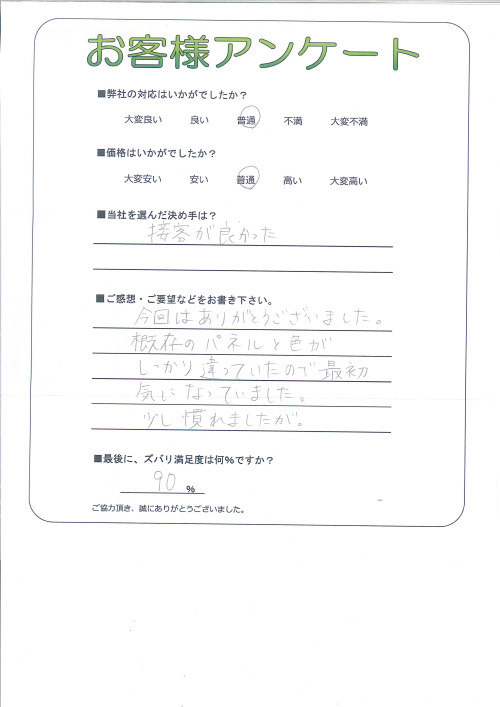 お客様アンケート
■弊社の対応はいかがでしたか？
大変良い 良い 普通 不満 大変不満
■価格はいかがでしたか？
大変安い 安い 普通 高い 大変高い
■当社を選んだ決め手は？
接客が良かった
■ご感想・ご要望などをお書き下さい。
今回はありがとうございました。
概存のパネルと色が
しっかり違っていたので最初
気になっていました。
少し慣れましたが。
■最後に、ズバリ満足度は何％ですか？
90 ％
ご協力頂き、誠にありがとうございました。